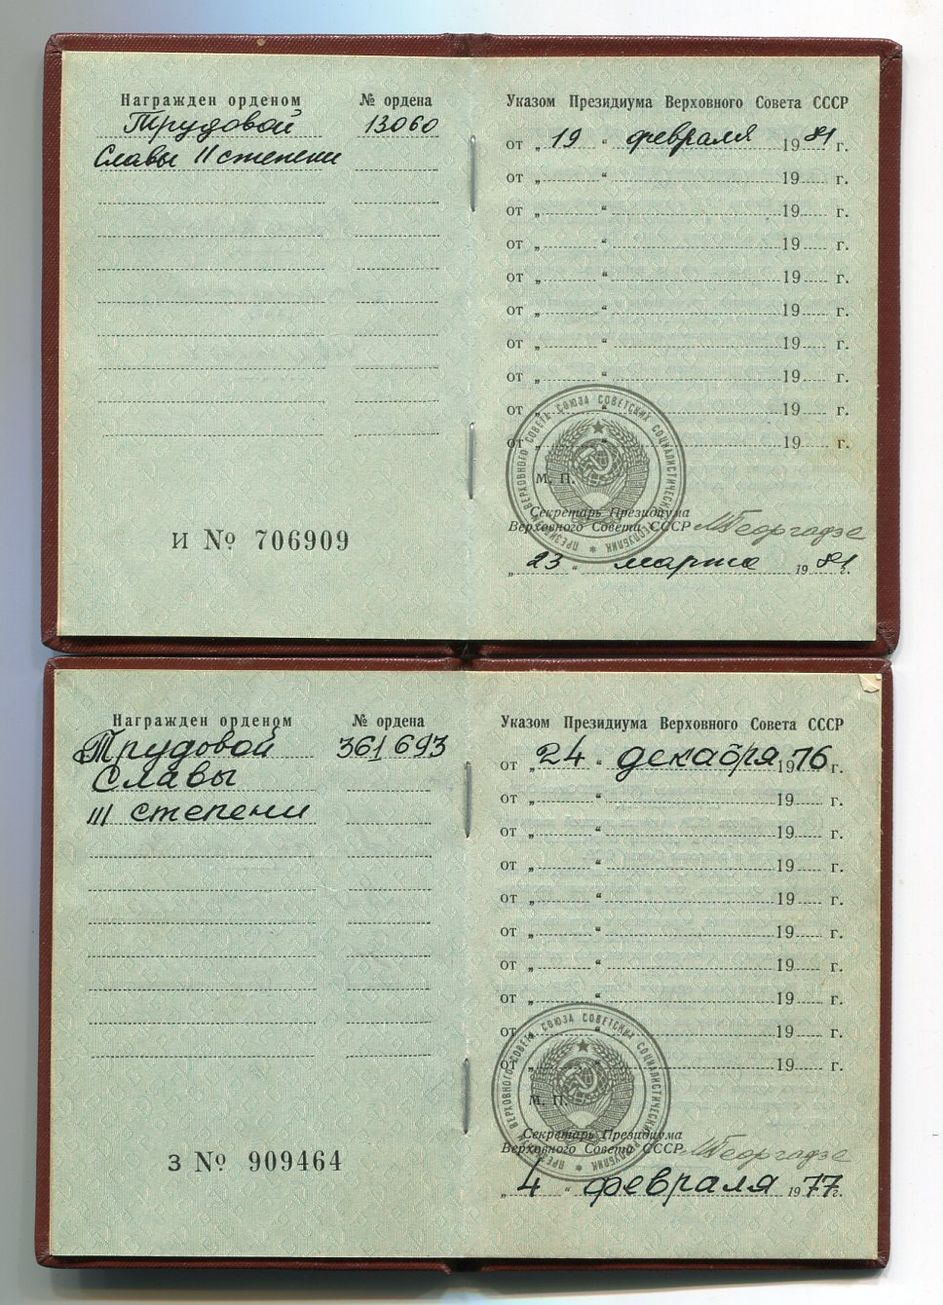 Награжден орденом № ордена
Трудовой 13060
Славы II степени
И № 706909
Указом Президиума Верховного Совета СССР
от „ 19 “ февраля 1981 г.
от „ “ 19 г.
от „ “ 19 г.
от „ “ 19 г.
от „ “ 19 г.
от „ “ 19 г.
от „ “ 19 г.
от „ “ 19 г.
от „ “ 19 г.
от „ “ 19 г.
М. П.
Секретарь Президиума
Верховного Совета СССР МГеоргадзе
„ 23 “ марта 1981 г.
ПРЕЗИДИУМ ВЕРХОВНОГО СОВЕТА СОЮЗА СОВЕТСКИХ СОЦИАЛИСТИЧЕСКИХ РЕСПУБЛИК
Награжден орденом № ордена
Трудовой 361693
Славы
III степени
З № 909464
Указом Президиума Верховного Совета СССР
от „ 24 “ декабря 1976 г.
от „ “ 19 г.
от „ “ 19 г.
от „ “ 19 г.
от „ “ 19 г.
от „ “ 19 г.
от „ “ 19 г.
от „ “ 19 г.
от „ “ 19 г.
от „ “ 19 г.
М. П.
Секретарь Президиума
Верховного Совета СССР МГеоргадзе
„ 4 “ февраля 1977 г.
ПРЕЗИДИУМ ВЕРХОВНОГО СОВЕТА СОЮЗА СОВЕТСКИХ СОЦИАЛИСТИЧЕСКИХ РЕСПУБЛИК